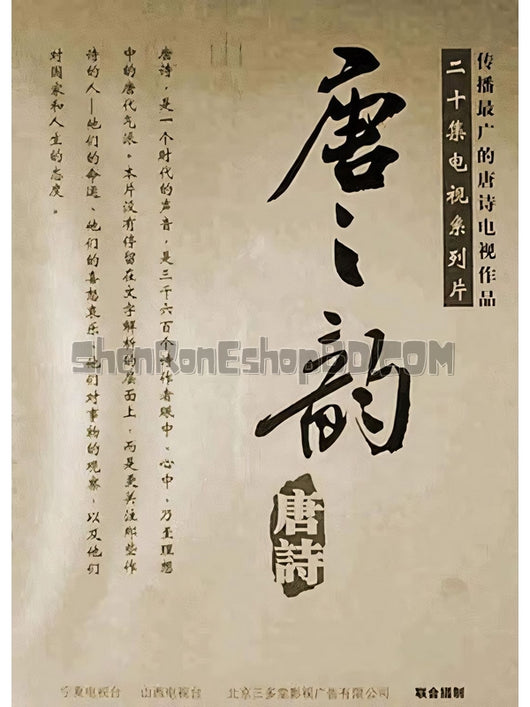 传播最广的唐诗电视作品
二十集电视系列片
唐之韵
唐詩
唐诗，是一个时代的声音，是三千六百个诗作者眼中、心中，乃至理想
中的唐代气派。本片没有停留在文字解析的层面上，而是更关注那些作
诗的人—他们的命运、他们的喜怒哀乐、他们对事物的观察，以及他们
对国家和人生的态度。
ShenRonEshopBD.COM
宁夏电视台 山西电视台 北京三多堂影视广告有限公司 联合摄制